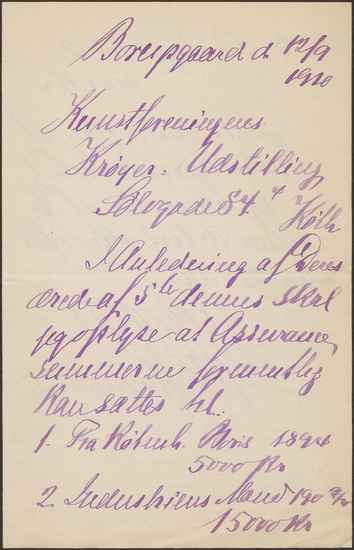 Borupgaard d. 12/9
1910
Kunstforeningens
Krøyer-Udstilling
Kbh
I Anledning af Deres
ærede af 5te dennes skal
jeg oplyse at Assurance
summerne
kan sættes til:
1. Fra Købmh. Børs 1894
5000 Kr
2. Industriens Mænd 190
15000 Kr